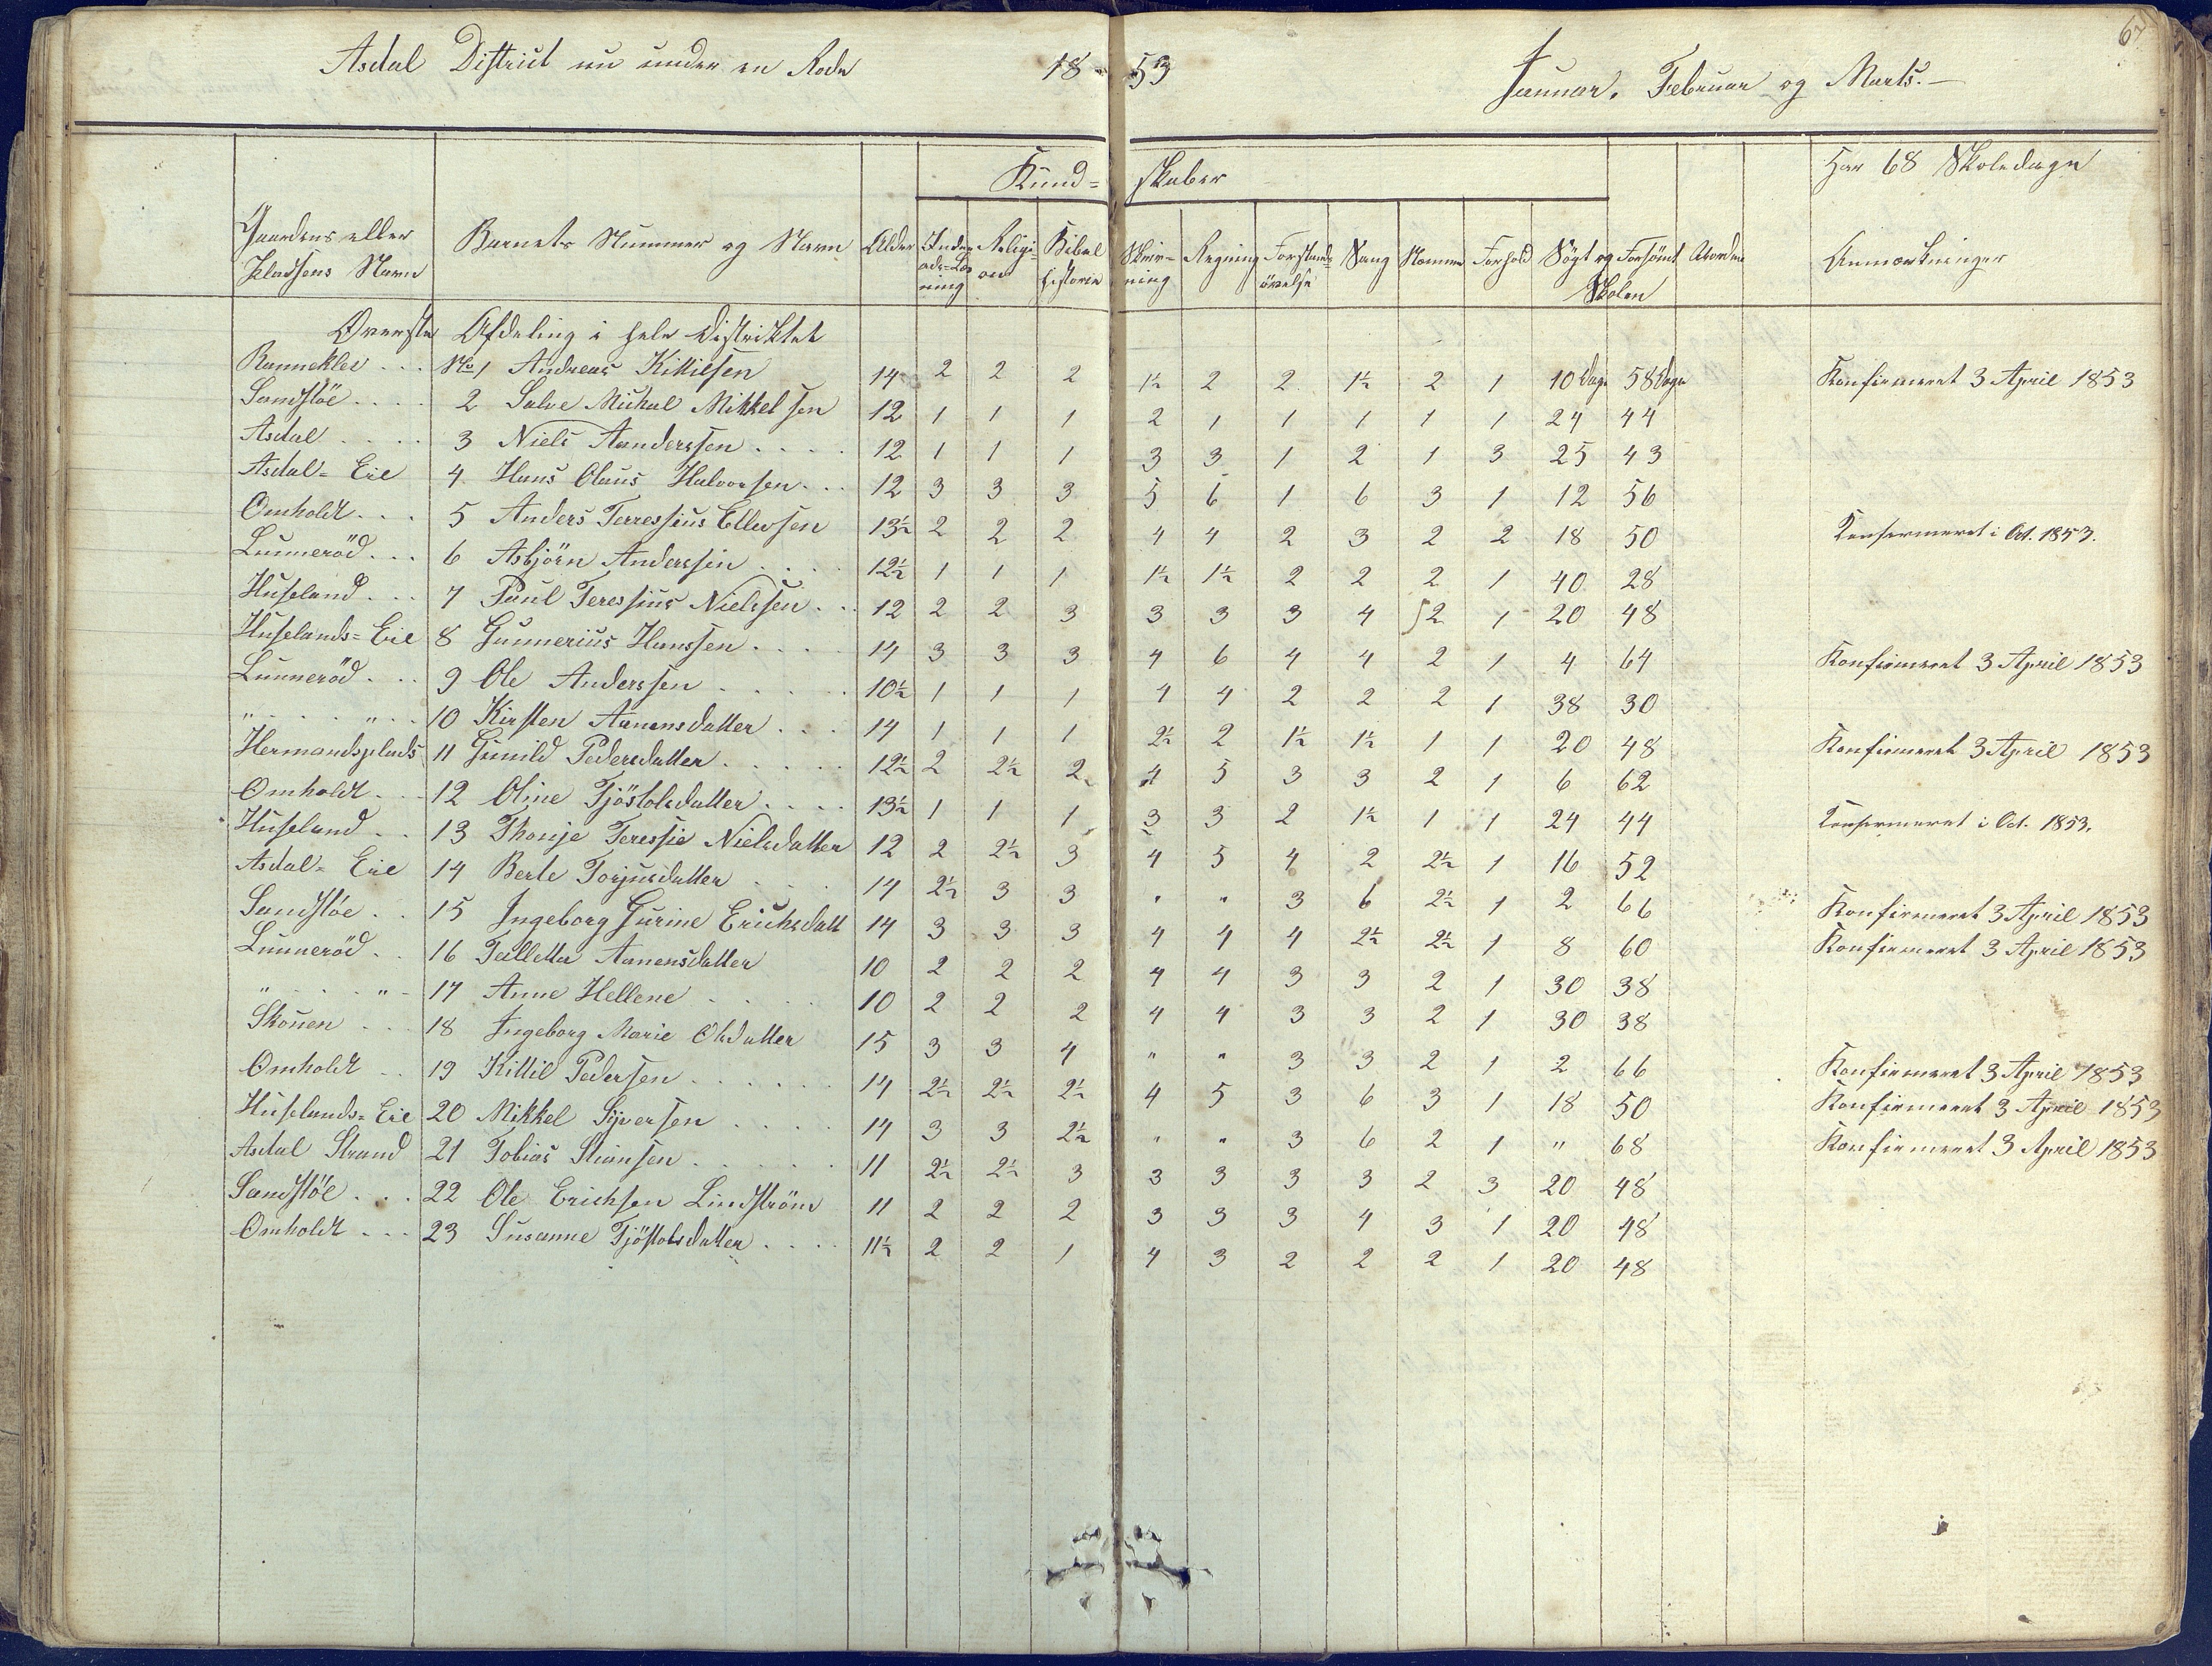 Asdal District nu under en Rode 18 53 Januar, Februar og Marts.
67
Kund= skaber
Har 68 Skoledage
Gaardens eller Pladsens Navn | Barnets Nummer og Navn | Alder | Inden ads=Læs ning | Religi= on | Bibel historie | Skriv= ning | Regning | Forstands= øvelse | Sang | Nemme | Forhold | Søgt og | Forsömt Skolen | Anmærkninger
Øverste Afdeling i hele Distriktet
Ranneklev . . . No 1 Andreas Kittilsen 14 2 2 2 1½ 2 2 1½ 2 1 10 Dage 58 Dage Konfirmeret 3 April 1853
Sandstöe . . . . 2 Salve Mickal Mikkelsen 12 1 1 1 2 1 1 1 1 1 24 44
Asdal . . . . 3 Niels Aanderssen . . . . 12 1 1 1 3 3 1 2 1 3 25 43
Asdal=Eie 4 Hans Olaus Halvorsen . . . 12 3 3 3 5 6 1 6 3 1 12 56
Omholdt . . . 5 Anders Terressius Ellevsen 13½ 2 2 2 4 4 2 3 2 2 18 50 Konfermeret i Oct. 1853.
Lunneröd . . . 6 Asbjörn Anderssen . . . . 12½ 1 1 1 1½ 1½ 2 2 2 1 40 28
Huseland . . . 7 Paul Teressius Nielssen . . . 12 2 2 3 3 3 3 4 2 1 20 48
Huselands=Eie 8 Gunnerius Hanssen . . . . 14 3 3 3 4 6 4 4 2 1 4 64 Konfirmeret 3 April 1853
Lunneröd . . . 9 Ole Anderssen . . . . . 10½ 1 1 1 4 4 2 2 2 1 38 30
" . . . " . . 10 Kirsten Aanensdatter . . . 14 1 1 1 2½ 2 1½ 1½ 1 1 20 48 Konfirmeret 3 April 1853
Hermandsplads 11 Gunild Pedersdatter . . . . . 12½ 2 2½ 2 4 5 3 3 2 1 6 62
Omholdt . . . 12 Oline Tjöstolsdatter . . . . 13½ 1 1 1 3 3 2 1½ 1 1 24 44 Konfermeret i Oct. 1853.
Huseland . . 13 Thonje Teressie Nielsdatter 12 2 2½ 3 4 5 4 2 2½ 1 16 52
Asdal=Eie 14 Berte Torjusdatter . . . 14 2½ 3 3 " " 3 6 2½ 1 2 66 Konfirmeret 3 April 1853
Sandstöe . . 15 Ingeborg Gurine Erichsdatt 14 3 3 3 4 4 4 2½ 2½ 1 8 60 Konfirmeret 3 April 1853
Lunneröd . . 16 Talletta Aanensdatter 10 2 2 2 4 4 3 3 2 1 30 38
" . . . " - 17 Anne Hellene . . . . 10 2 2 2 4 4 3 3 2 1 30 38
Skouen . . . 18 Ingeborg Marie Olsdatter 15 3 3 4 " " 3 3 2 1 2 66 Konfirmeret 3 April 1853
Omholdt . . 19 Kittil Pedersen . . . . . . 14 2½ 2½ 2½ 4 5 3 6 3 1 18 50 Konfirmeret 3 April 1853
Huselands=Eie 20 Mikkel Syversen . . . . 14 3 3 2½ " " 3 6 2 1 " 68 Konfirmeret 3 April 1853
Asdal Strand 21 Tobias Stiansen . . . . . . 11 2½ 2½ 3 3 3 3 3 2 3 20 48
Sandstöe . . . 22 Ole Erichsen Lindström 11 2 2 2 3 3 3 4 3 1 20 48
Omholdt . . . 23 Susanne Tjöstolsdatter . . . . 11½ 2 2 1 4 3 2 2 2 1 20 48